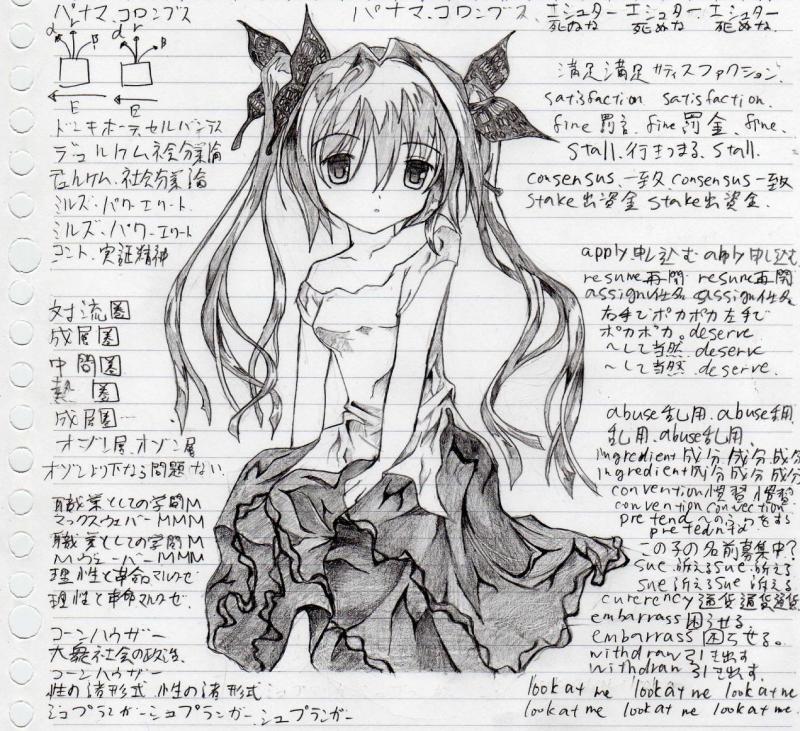 パナマ、コロンブス
パナマ、コロンブス、エシュター エシュター エシュター
死ぬな 死ぬな 死ぬな
d r β d r β
E E
満足満足サティスファクション
satisfaction satisfaction.
fine 罰金、fine 罰金、fine.
stall.行きつまる、stall.
consensus、一致、consensus 一致
stake 出資金 stake 出資金.
ドンキホーテ、セルバンテス
デュルケム社会分業論
デュルケム、社会分業論
ミルズ・パワーエリート
ミルズ・パワーエリート
コント、実証精神
apply 申し込む apply 申し込む
resume再開 resume再開
assign任名 assign任名
右手でポカポカ左手で
ポカポカ。deserve
〜して当然.deserve
〜して当然.deserve.
対流圏
成層圏
中間圏
熱圏
成層圏
オゾン層、オゾン層
オゾンより下なる問題ない.
abuse乱用.abuse乱用
乱用.abuse乱用.
ingredient 成分 成分 成分
ingredient 成分 成分 成分
convention慣習 慣習
convention convection
pretend 〜のふりをする
pretednid
この子の名前募集中?
sue 訴えるsue 訴える
sue 訴えるsue 訴える
curerency 通貨通貨通貨
embarrass 困らせる
embarrass 困らせる。
withdraw 引き出す
withdraw 引き出す.
職業としての学問M
マックスウェバーMMM
職業としての学問M
MウェーバーMMM
理性と革命マルクーゼ
理性と革命マルクーゼ.
コーンハウザー
大衆社会の政治、
コーンハウザー
性の諸形式 性の諸形式
シュプランガーシュプランガー、シュプランガー
look at me look at me look at me
look at me look at me look at me.